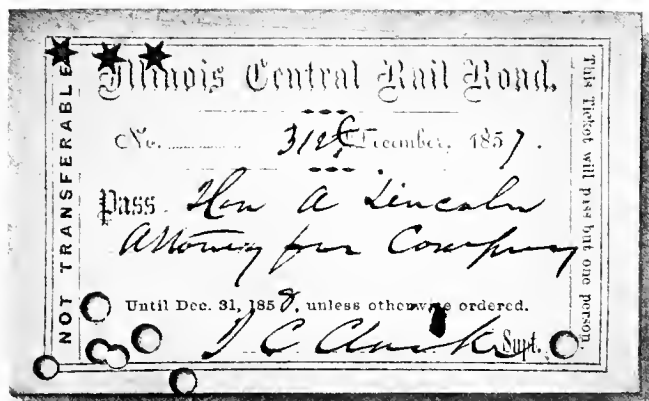 Illinois Central Rail Road.
No. 31st December, 1857.
Pass Hon A Lincoln
Attorney for Company
Until Dec. 31, 1858, unless otherwise ordered.
Supt.
NOT TRANSFERABLE
This Ticket will pass but one person.